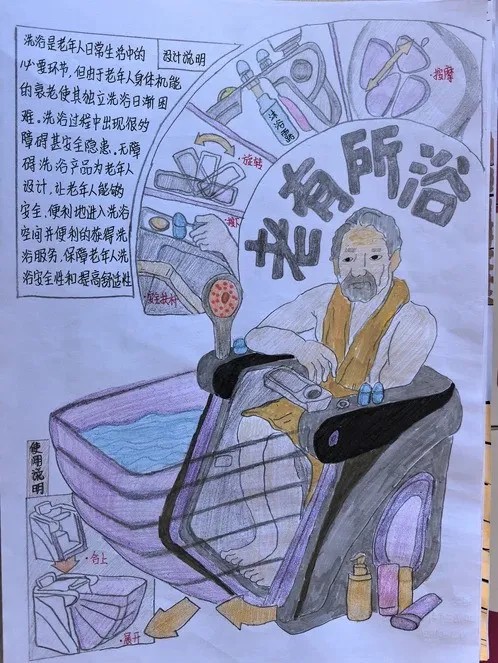 设计说明
洗浴是老年人日常生活中的
必要环节,但由于老年人身体机能
的衰老使其独立洗浴日渐困
难。洗浴过程中出现很多
障碍甚安全隐患。无障
碍洗浴产品为老年人
设计,让老年人能够
安全,便利地进入洗浴
空间并便利的获得洗
浴服务,保障老年人洗
浴安全性和提高舒适性
老有所浴
·按摩
沐浴露
·旋转
·安全扶杆
使用说明
·合上
·展开